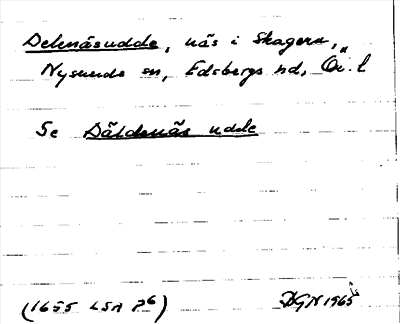 Delenäsudde, näs i Skagern,
Nysunds sn, Edsbergs hd, Ör. l
Se Däldenäs udde
(1655 LSA P6)
DGN 1965